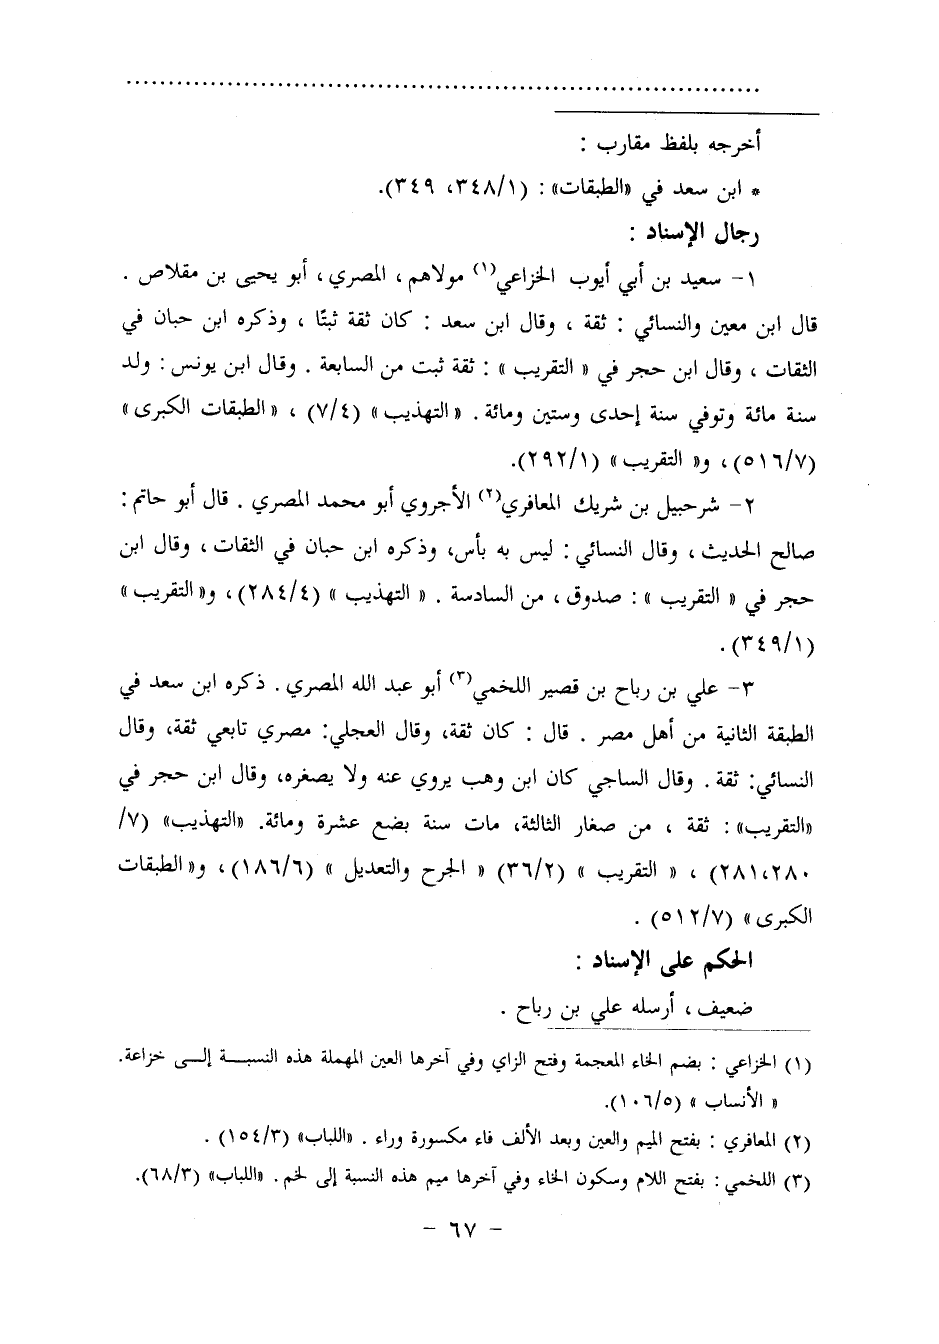 ................................................................................
أخرجه بلفظ مقارب :
* ابن سعد في «الطبقات» : (٣٤٨/١، ٣٤٩).
رجال الإسناد :
١- سعيد بن أبي أيوب الخزاعي(١) مولاهم ، المصري ، أبو يحيى بن مقلاص .
قال ابن معين والنسائي : ثقة ، وقال ابن سعد : كان ثقة ثبتًا ، وذكره ابن حبان في
الثقات ، وقال ابن حجر في « التقريب » : ثقة ثبت من السابعة . وقال ابن يونس : ولد
سنة مائة وتوفي سنة إحدى وستين ومائة . « التهذيب » (٧/٤) ، « الطبقات الكبرى »
(٥١٦/٧) ، و« التقريب » (٢٩٢/١).
٢- شرحبيل بن شريك المعافري(٢) الأجروي أبو محمد المصري . قال أبو حاتم :
صالح الحديث ، وقال النسائي : ليس به بأس، وذكره ابن حبان في الثقات ، وقال ابن
حجر في « التقريب » : صدوق ، من السادسة . « التهذيب » (٢٨٤/٤) ، و« التقريب »
(٣٤٩/١) .
٣- علي بن رباح بن قصير اللخمي(٣) أبو عبد الله المصري . ذكره ابن سعد في
الطبقة الثانية من أهل مصر . قال : كان ثقة، وقال العجلي: مصري تابعي ثقة، وقال
النسائي: ثقة . وقال الساجي كان ابن وهب يروي عنه ولا يصغره، وقال ابن حجر في
«التقريب» : ثقة ، من صغار الثالثة، مات سنة بضع عشرة ومائة. «التهذيب» (٧/
٢٨١،٢٨٠) ، « التقريب » (٣٦/٢) « الجرح والتعديل » (١٨٦/٦) ، و« الطبقات
الكبرى » (٥١٢/٧) .
الحكم على الإسناد :
ضعيف ، أرسله علي بن رباح .
(١) الخزاعي : بضم الخاء المعجمة وفتح الزاي وفي آخرها العين المهملة هذه النسبة إلى خزاعة.
« الأنساب » (١٠٦/٥).
(٢) المعافري : بفتح الميم والعين وبعد الألف فاء مكسورة وراء . «اللباب» (١٥٤/٣) .
(٣) اللخمي : بفتح اللام وسكون الخاء وفي آخرها ميم هذه النسبة إلى لخم . «اللباب» (٦٨/٣).
- ٦٧ -